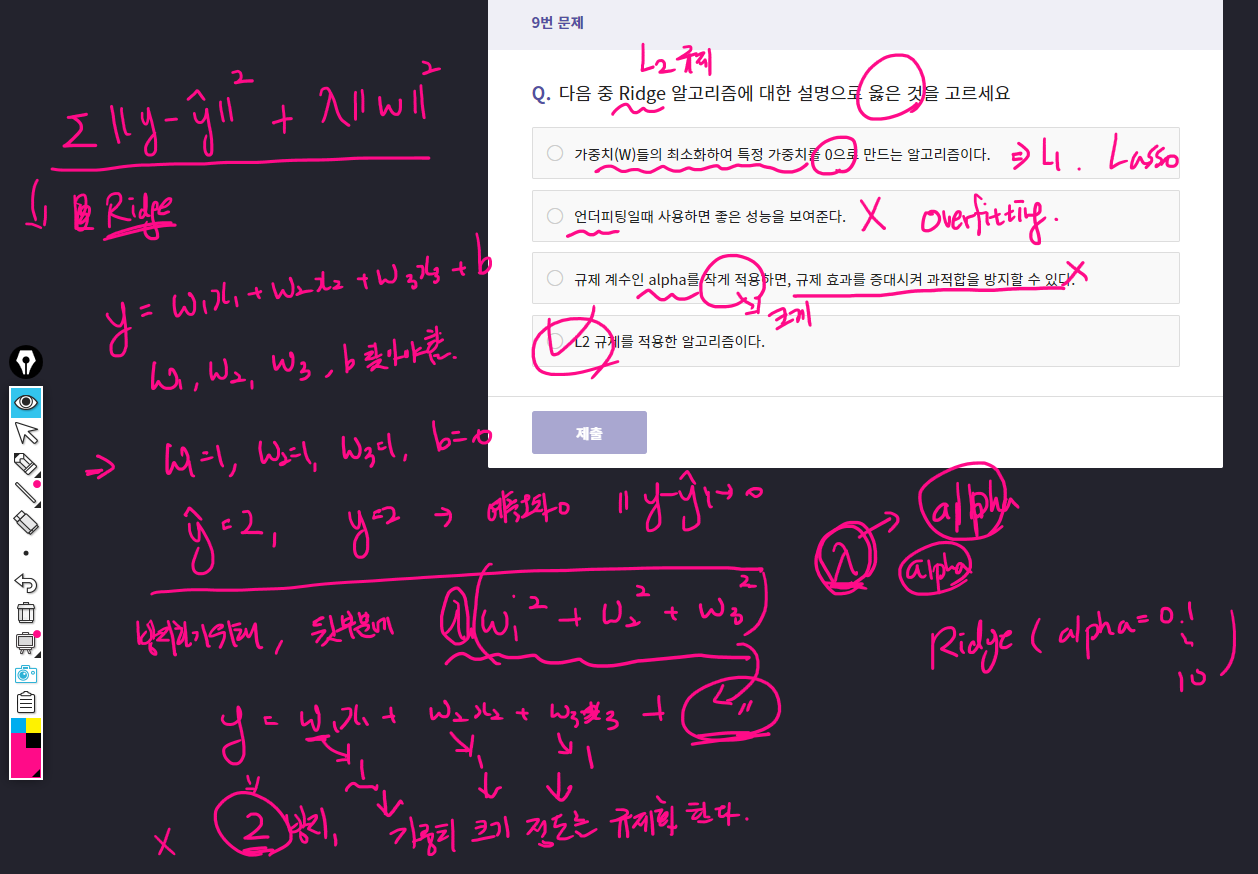 9번 문제
L2 규제
Q. 다음 중 Ridge 알고리즘에 대한 설명으로 옳은 것을 고르세요
가중치(W)들의 최소화하여 특정 가중치를 0으로 만드는 알고리즘이다. ⇒ L1. Lasso
언더피팅일때 사용하면 좋은 성능을 보여준다. X Overfitting.
규제 계수인 alpha를 작게 적용하면, 규제 효과를 증대시켜 과적합을 방지할 수 있다. X
크게
L2 규제를 적용한 알고리즘이다.
제출
Σ ||y-ŷ||² + λ||w||²
Ridge
y = w1x1 + w2x2 + w3x3 + b
w1, w2, w3, b 찾아야함.
⇒ w1=1, w2=1, w3=1, b=0
ŷ=2, y=2 → 예측오차0 ||y-ŷ|→0
방지하기위해, 뒷부분에 λ(w1² + w2² + w3²)
y = w1x1 + w2x2 + w3x3 + "
1 1 1
X 2 방지, 가중치 크기 정도는 규제화 한다.
λ → alpha
alpha
Ridge (alpha=0.1
10 )